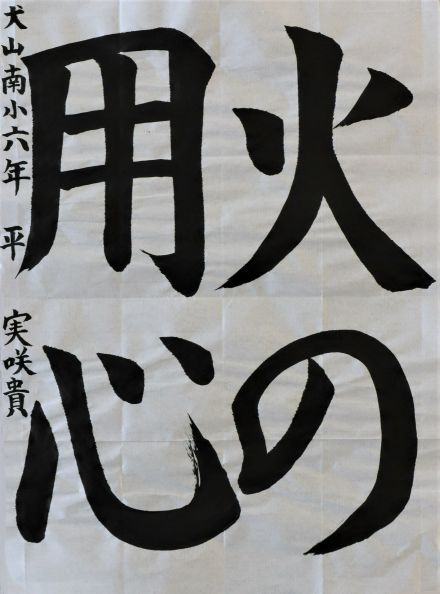 火の
用心
犬山南小六年 平 実咲貴